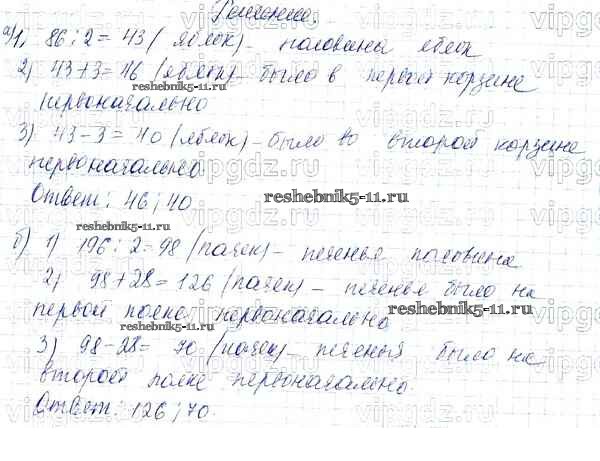 Решение.
а) 1. 86 : 2 = 43 (яблок) - половина яблок
2) 43 + 3 = 46 (яблок) - было в первой корзине
первоначально
3) 43 - 3 = 40 (яблок) - было во второй корзине
первоначально
Ответ: 46; 40
б) 1) 196 : 2 = 98 (пачек) - печенья половина
2) 98 + 28 = 126 (пачек) - печенья было на
первой полке первоначально
3) 98 - 28 = 70 (пачек) - печенья было на
второй полке первоначально.
Ответ: 126; 70.
reshebnik5-11.ru
reshebnik5-11.ru
reshebnik5-11.ru
reshebnik5-11.ru
reshebnik5-11.ru
vipgdz.ru